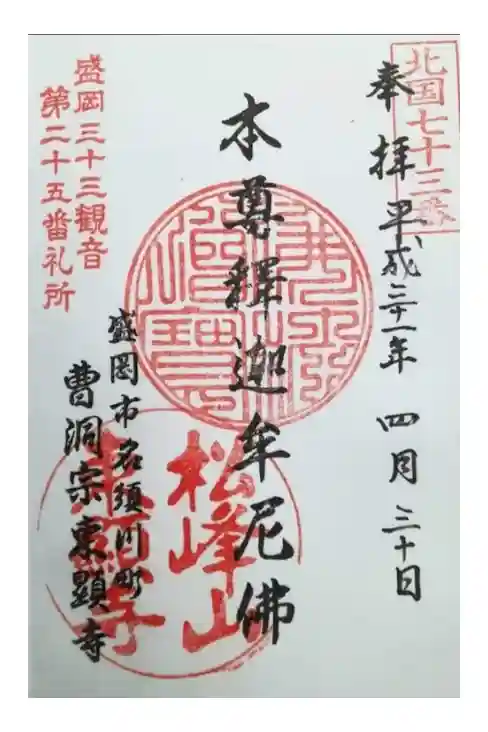 北国七十三番
奉拝 平成三十一年 四月 三十日
本尊釋迦牟尼佛
盛岡市名須川町
曹洞宗東顯寺
松峰山
東顯寺
盛岡三十三観音
第二十五番礼所